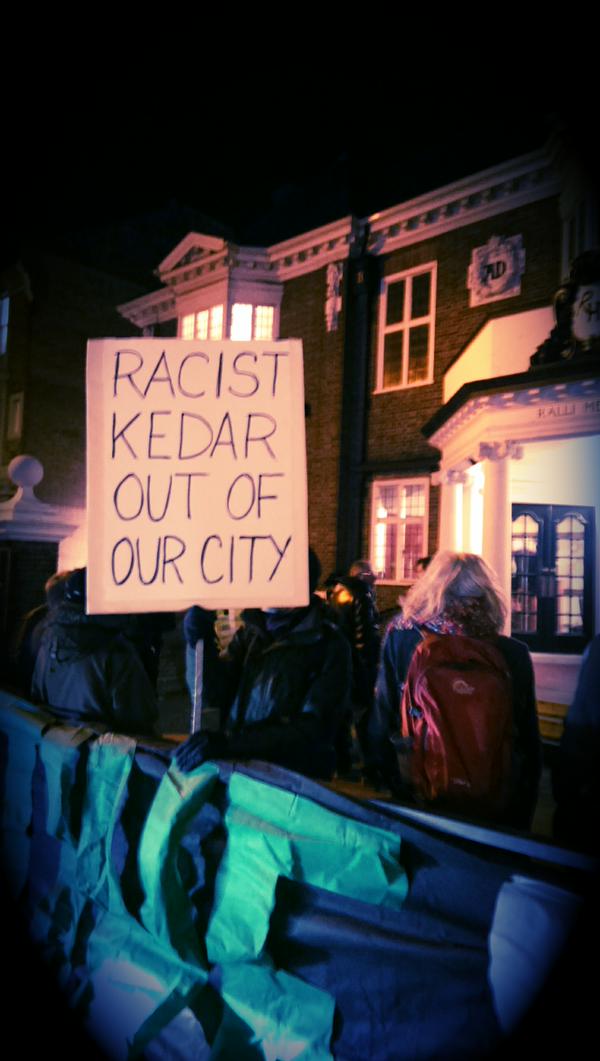 RACIST
KEDAR
OUT OF
OUR CITY
AD
RALLI